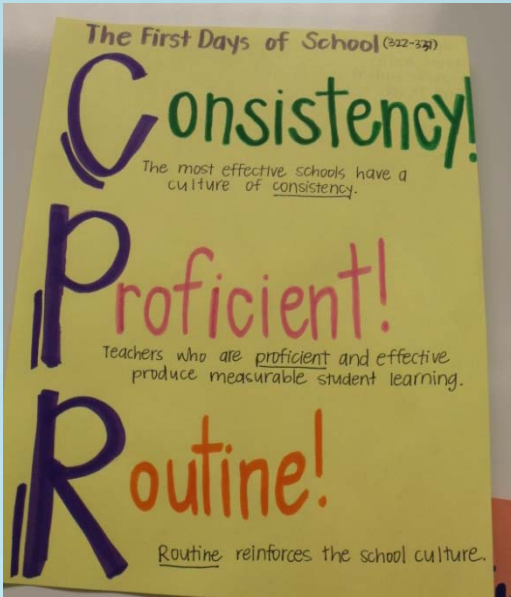 The First Days of School (322-331)
Consistency!
The most effective schools have a
culture of consistency.
Proficient!
Teachers who are proficient and effective
produce measurable student learning.
Routine!
Routine reinforces the school culture.